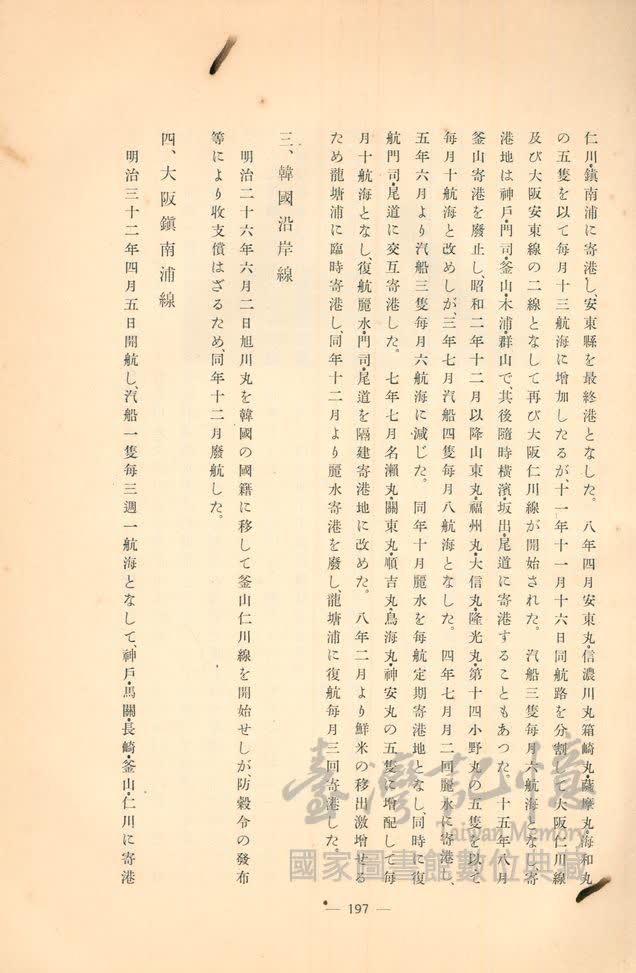 仁川・鎭南浦に寄港し、安東縣を最終港となした。　八年四月安東丸・信濃川丸・箱崎丸・薩摩丸・海和丸
の五隻を以て每月十三航海に增加したるが、十一年十一月十六日同航路を分割して大阪仁川線
及び大阪安東線の二線となして再び大阪仁川線が開始された。　汽船三隻每月六航海となし、寄
港地は神戶・門司・釜山・木浦・群山で、其後隨時橫濱・坂出・尾道に寄港することもあつた。十五年八月
釜山寄港を廢止し、昭和二年十二月以降山東丸・福州丸・大信丸・隆光丸・第十四小野丸の五隻を以て
每月十航海と改めしが、三年七月汽船四隻每月八航海となした。　四年七月月二回麗水に寄港し、
五年六月より汽船三隻每月六航海に減じた。　同年十月麗水を每航定期寄港地となし、同時に復
航門司・尾道に交互寄港した。　七年七月名瀨丸・關東丸・順吉丸・鳥海丸・神安丸の五隻に增配して每
月十航海となし、復航麗水・門司・尾道を隔建寄港地に改めた。　八年二月より鮮米の移出激增せる
ため龍塘浦に臨時寄港し、同年十二月より麗水寄港を廢し、龍塘浦に復航每月三回寄港した。
三、韓國沿岸線
明治二十六年六月二日旭川丸を韓國の國籍に移して釜山仁川線を開始せしが、防穀令の發布
等により收支償はざるため、同年十二月廢航した。
四、大阪鎭南浦線
明治三十二年四月五日開航し、汽船一隻每三週一航海となして、神戶・馬關・長崎・釜山・仁川に寄港
— 197 —
臺灣記憶
Taiwan Memory
國家圖書館數位典藏